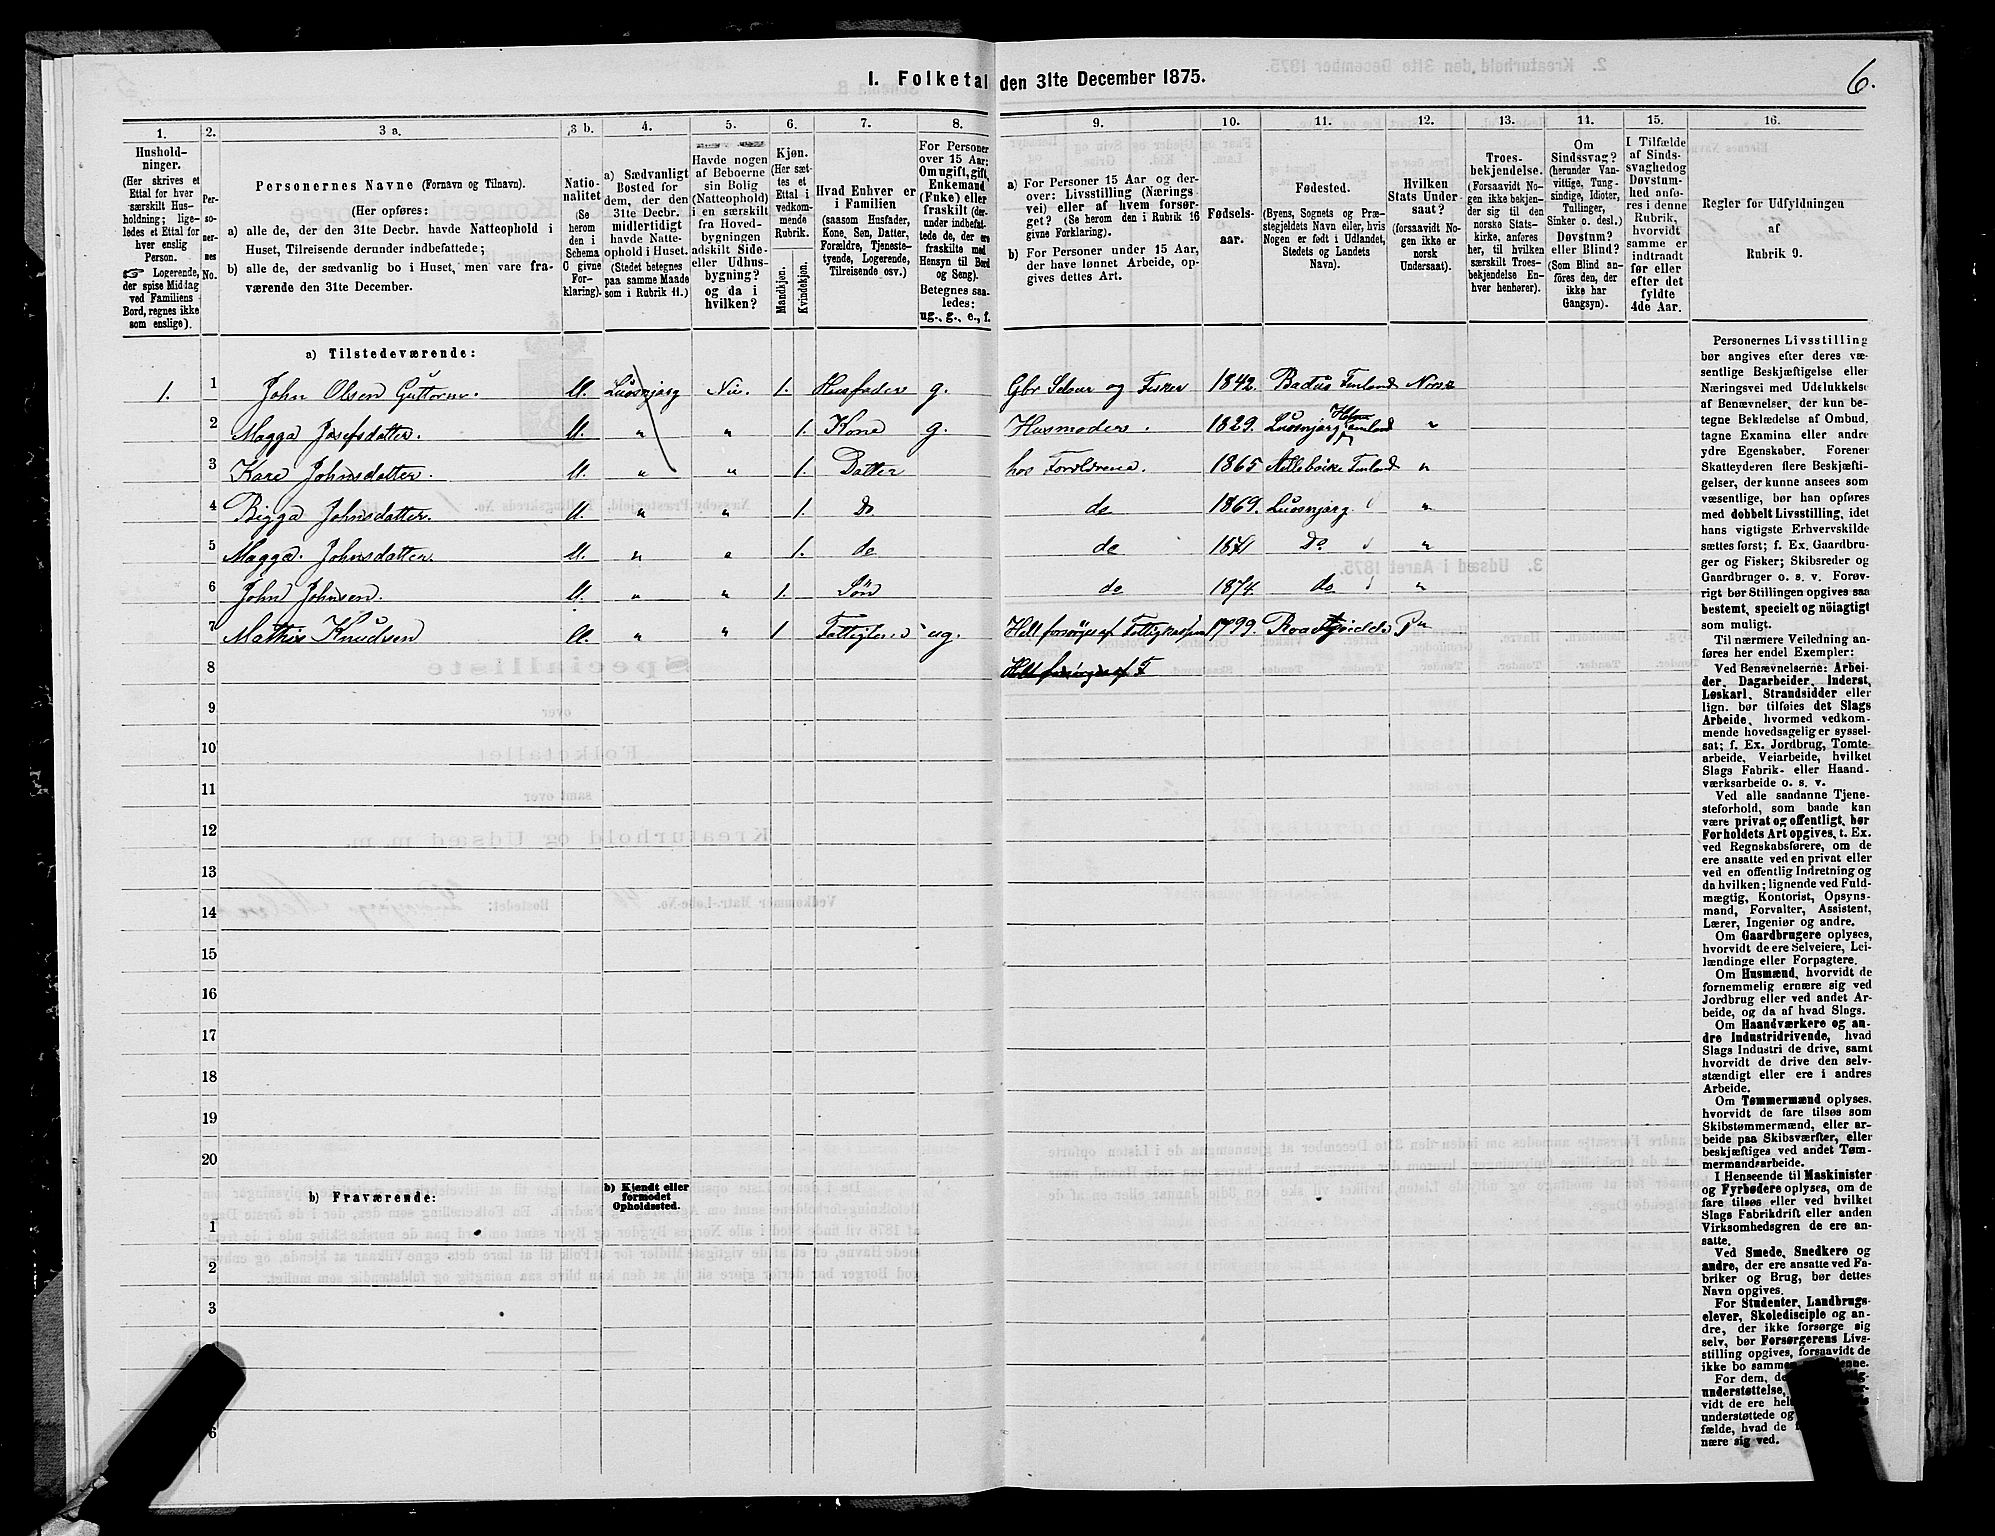 I. Folketal den 31te December 1875.
6.
1.
Hushold-
ninger.
(Her skrives et
Ettal for hver
særskilt Hus-
holdning; lige-
ledes et Ettal for
hver enslig
Person.
Logerende,
der spise Middag
ved Familiens
Bord, regnes ikke
som enslige).
2.
Per-
so-
ner-
nes
No.
3 a.
Personernes Navne (Fornavn og Tilnavn).
(Her opføres:
a) alle de, der den 31te Decbr. havde Natteophold i
Huset, Tilreisende derunder indbefattede;
b) alle de, der sædvanlig bo i Huset, men vare fra-
værende den 31te December.
3 b.
Natio-
nalitet
(Se
herom
den i
Schema
C givne
For-
klaring).
4.
a) Sædvanligt
Bosted for
dem, der den
31te Decbr.
midlertidigt
havde Natte-
ophold i Huset.
(Stedet betegnes
paa samme Maade
som i Rubrik 11.)
5.
Havde nogen
af Beboerne
sin Bolig
(Natteophold)
i en særskilt
fra Hoved-
bygningen
adskilt Side-
eller Udhus-
bygning?
og da i
hvilken?
6.
Kjøn.
(Her sæt-
tes et
Ettal i
vedkom-
mende
Rubrik.
Mandkjøn.
Kvindekjøn.
7.
Hvad Enhver er
i Familien
(saasom Husfader,
Kone, Søn, Datter,
Forældre, Tjeneste-
tyende, Logerende,
Tilreisende osv.)
8.
For Personer
over 15 Aar:
Om ugift, gift,
Enkemand
(Enke) eller
fraskilt (der-
under indbefat-
tede de, der ere
fraskilte med
Hensyn til Bord
og Seng).
Betegnes saa-
ledes:
ug., g., e., f.
9.
a) For Personer 15 Aar og der-
over: Livsstilling (Nærings-
vei) eller af hvem forsør-
get? (Se herom den i Rubrik 16
givne Forklaring).
b) For Personer under 15 Aar,
der have lønnet Arbeide, op-
gives dettes Art.
10.
Fødsels-
aar.
11.
Fødested.
(Byens, Sognets og Præ-
stegjeldets Navn eller, hvis
Nogen er født i Udlandet,
Stedets og Landets
Navn).
12.
Hvilken
Stats Under-
saat?
(forsaavidt No-
gen ikke er
norsk
Undersaat).
13.
Troes-
bekjendelse.
(Forsaavidt No-
gen ikke bekjen-
der sig til den
norske Stats-
kirke, anføres
her, til hvilken
særskilt Troes-
bekjendelse En-
hver henhører).
14.
Om
Sindssvag?
(herunder Van-
vittige, Tung-
sindige, Idioter,
Tullinger,
Sinker o. desl.)
Døvstum?
eller Blind?
(Som Blind an-
föres den, der
ikke har
Gangsyn).
15.
I Tilfælde
af Sinds-
svaghed og
Døvstum-
hed anfø-
res i denne
Rubrik,
hvorvidt
samme er
indtraadt
før eller
efter det
fyldte
4de Aar.
16.
Regler for Udfyldningen
af
Rubrik 9.
a) Tilstedeværende:
1. 1 John Olsen Guttorm. Nei. 1. Husfader g. Gbr Selveier og Fisker 1842. Finland Norsk
2 Magga Josefsdatter. " " 1. Kone g. Husmoder. 1829. "
3 Kare Johnsdatter. " " 1. Datter hos Forældrene. 1865 Finland "
4 Bigga Johnsdatter. " " 1. Do de 1869. "
5 Magga Johnsdatter. " " 1. de de 1871 Do "
6 John Johnsen. " " 1. Søn de 1874. de "
7 Mathis Knudsen " " 1 ug. Helt forsørges af 1799.
8 Helt forsørges af F
9
10
11
12
13
14
15
16
17
18
19
20
b) Fraværende:
b) Kjendt eller
formodet
Opholdssted.
1
2
3
6
Personernes Livsstilling
bør angives efter deres væ-
sentlige Beskjæftigelse eller
Næringsvei med Udelukkelse
af Benævnelser, der kun be-
tegne Beklædelse af Ombud,
tagne Examina eller andre
ydre Egenskaber. Forener
Skatteyderen flere Beskjæfti-
gelser, der kunne ansees som
væsentlige, bør han opføres
med dobbelt Livsstilling, idet
hans vigtigste Erhvervskilde
sættes først; f. Ex. Gaardbru-
ger og Fisker; Skibsreder og
Gaardbruger o. s. v. Forøv-
rigt bør Stillingen opgives saa
bestemt, specielt og nöiagtigt
som muligt.
Til nærmere Veiledning an-
føres her endel Exempler:
Ved Benævnelserne: Arbei-
der, Dagarbeider, Inderst,
Løskarl, Strandsidder eller
lign. bør tilføies det Slags
Arbeide, hvormed vedkom-
mende hovedsagelig er syssel-
sat; f. Ex. Jordbrug, Tomte-
arbeide, Veiarbeide, hvilket
Slags Fabrik- eller Haand-
værksarbeide o. s. v.
Ved alle saadanne Tjene-
steforhold, som baade kan
være privat og offentligt, bør
Forholdets Art opgives, t. Ex.
ved Regnskabsførere, om de
ere ansatte ved en privat eller
ved en offentlig Indretning og
da hvilken; lignende ved Fuld-
mægtig, Kontorist, Opsyns-
mand, Forvalter, Assistent,
Lærer, Ingeniør og andre.
Om Gaardbrugere oplyses,
hvorvidt de ere Selveiere, Lei-
lændinge eller Forpagtere.
Om Husmænd, hvorvidt de
fornemmelig ernære sig ved
Jordbrug eller ved andet Ar-
beide, og da af hvad Slags.
Om Haandværkere og an-
dre Industridrivende, hvad
Slags Industri de drive, samt
hvorvidt de drive den selv-
stændigt eller ere i andres
Arbeide.
Om Tømmermænd oplyses,
hvorvidt de fare tilsøs som
Skibstømmermænd, eller ar-
beide paa Skibsværfter, eller
beskjæftiges ved andet Tøm-
mermandsarbeide.
I Henseende til Maskinister
og Fyrbødere oplyses, om de
fare tilsøs eller ved hvilket
Slags Fabrikdrift eller anden
Virksomhedsgren de ere an-
satte.
Ved Smede, Snedkere og
andre, der ere ansatte ved Fa-
briker og Brug, bør dettes
Navn opgives.
For Studenter, Landbrugs-
elever, Skoledisciple og an-
dre, der ikke forsørge sig
selv, bør Forsørgerens Livs-
stilling opgives, forsaavidt de
ikke bo sammen
For dem, de
understøttelse,
vidt de ere hel
understøttede og
fælde, hvad de
nære sig ved.